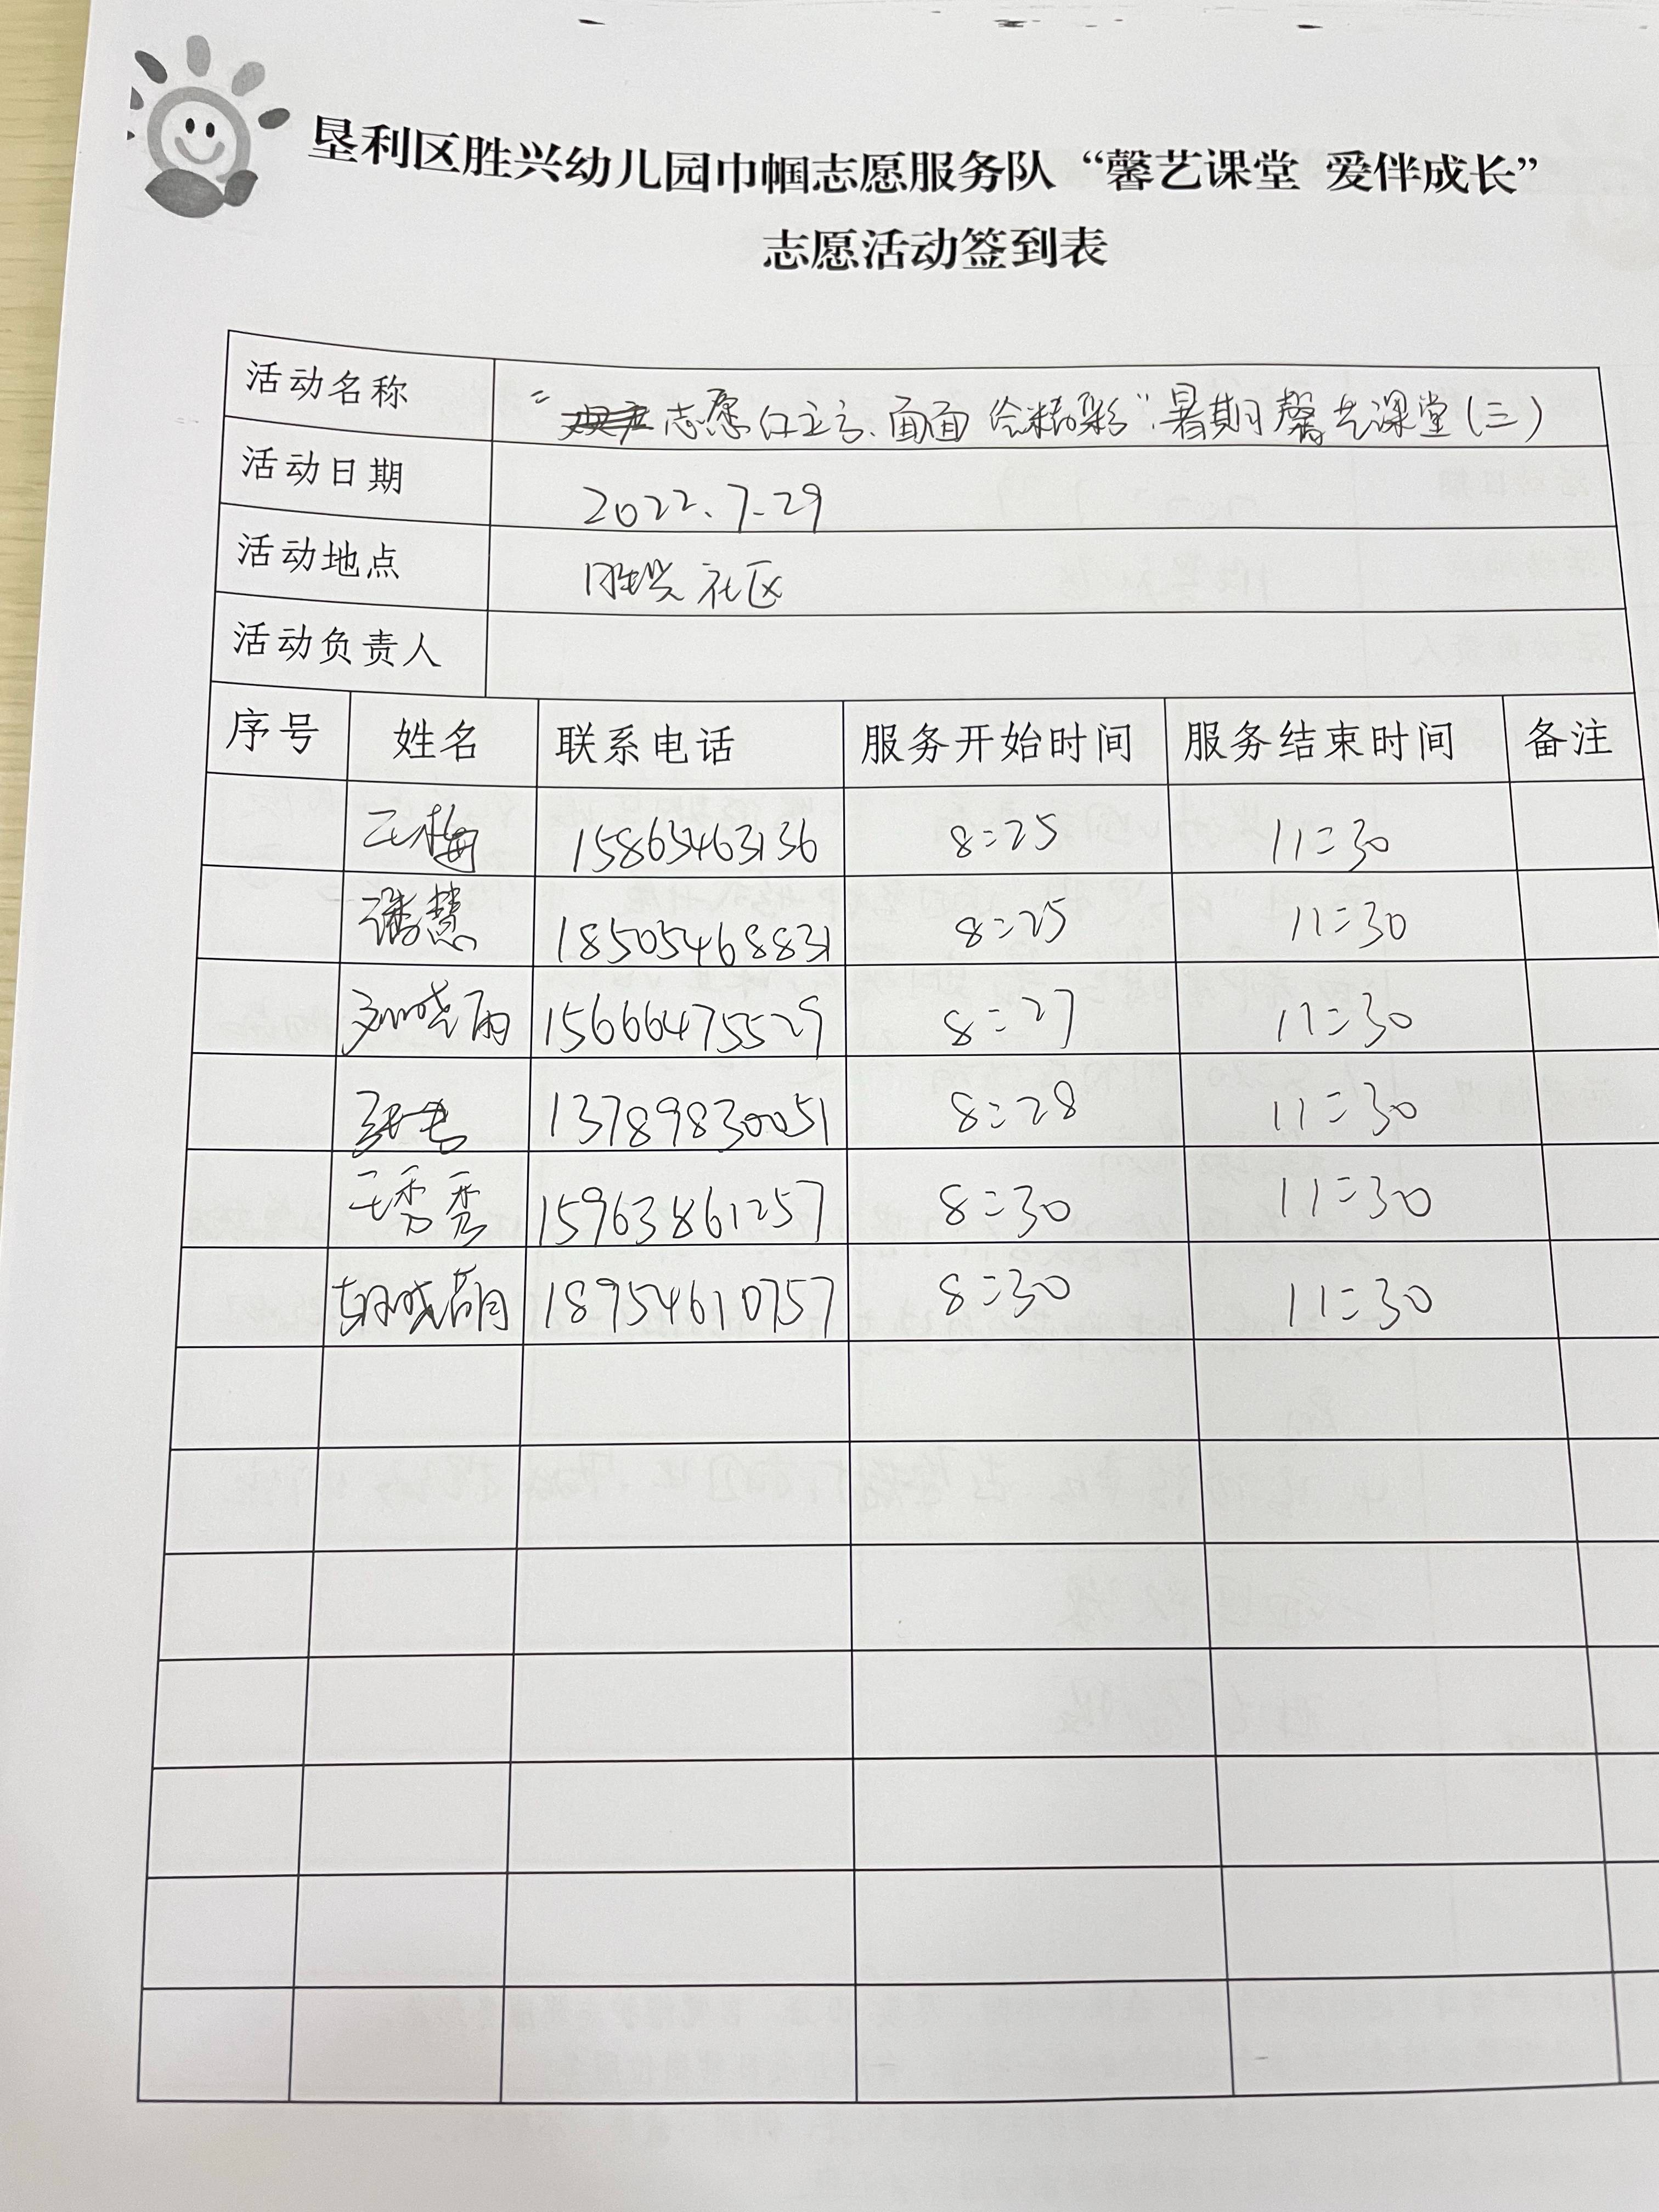 垦利区胜兴幼儿园巾帼志愿服务队“馨艺课堂 爱伴成长”
志愿活动签到表
活动名称 “志愿红主言、面面绘精彩”暑期馨艺课堂(三)
活动日期 2022.7.29
活动地点 胜兴社区
活动负责人
序号 姓名 联系电话 服务开始时间 服务结束时间 备注
王梅 15865463136 8:25 11:30
潘慧 18505468831 8:25 11:30
刘晓雨 15666475529 8:27 11:30
13789830051 8:28 11:30
王秀秀 15963861257 8:30 11:30
胡晓萌 18954610757 8:30 11:30